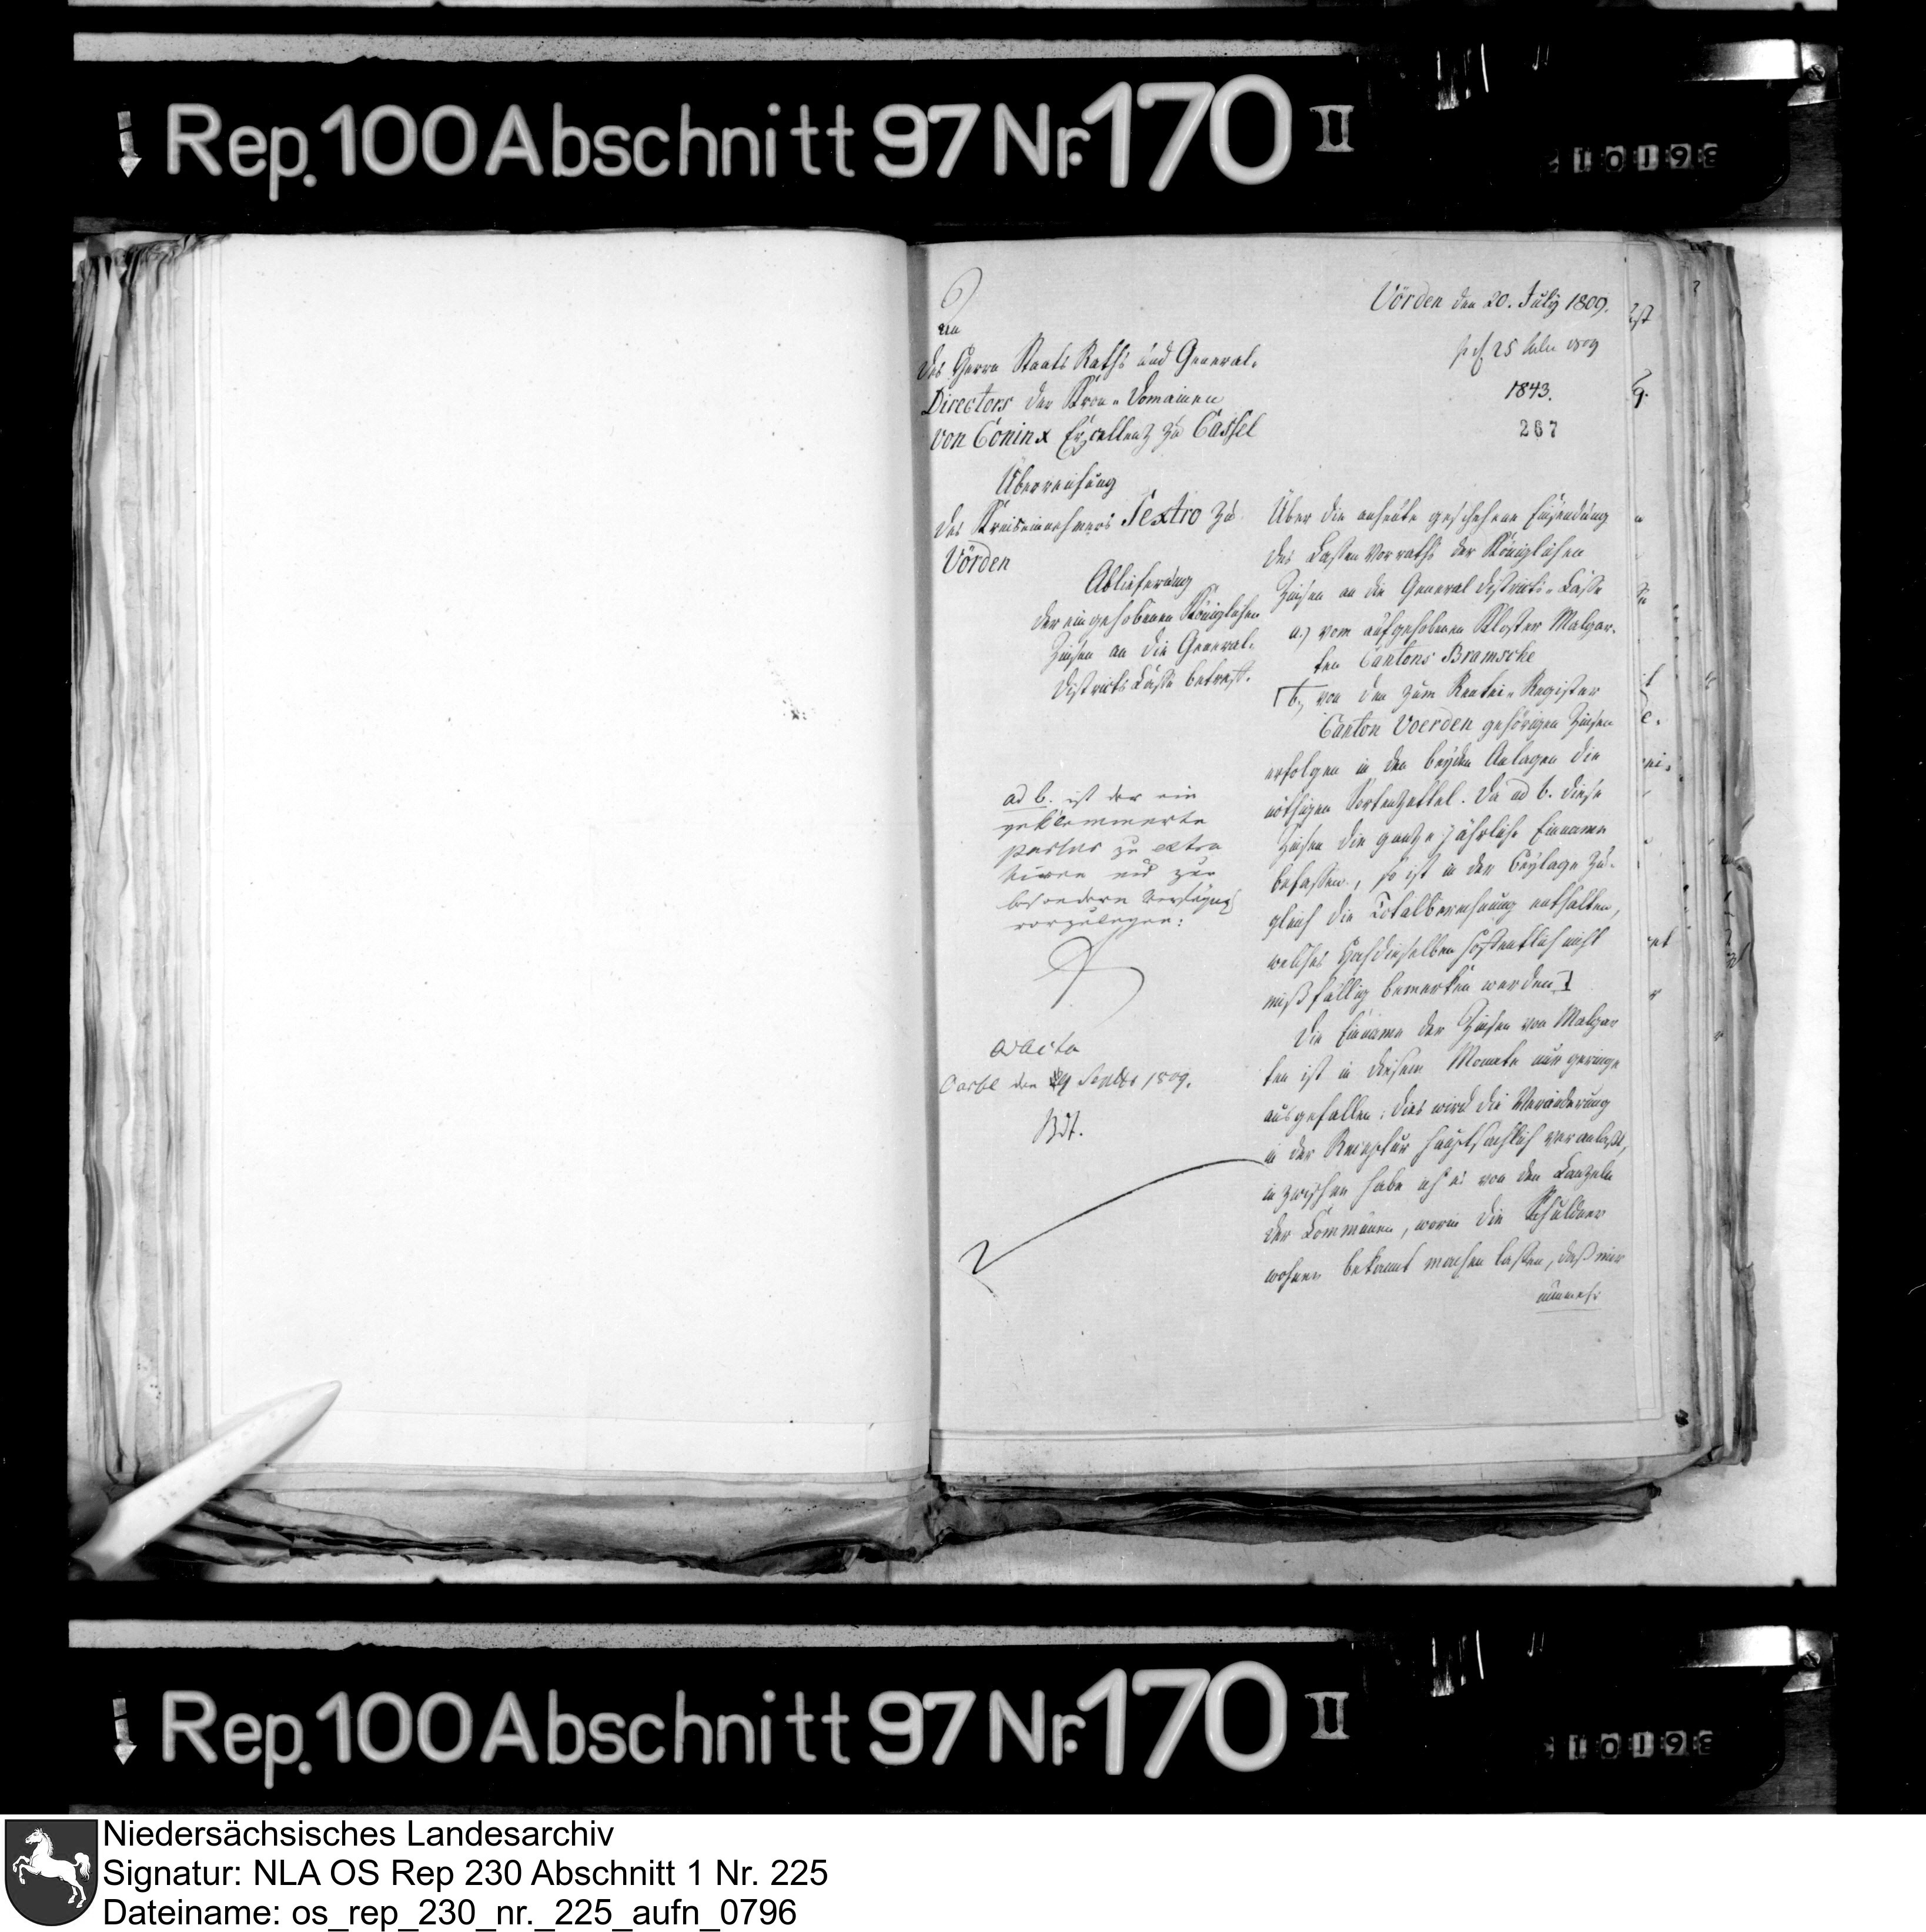 Rep. 100 Abschnitt 97 Nr. 170 II
Vörden den 20. July 1809.
An
des Herrn Staats Raths und General-
Directors der Kron-Domainen
von Coninx Excellenz zu Cassel
25 Julii 1809
1843.
267
Überreichung
des Kreiseinnehmers Textro zu
Vörden
Ablieferung
der eingehobenen Königlichen
Zinsen an die General-
Districts Casse betreff.
Über die anheute geschehene Einsendung
des Cassen Vorraths der Königlichen
Zinsen an die General Districts-Casse
a.) vom aufgehobenen Kloster Malgar-
ten Cantons Bramsche
b., von den zum Rentei-Register
Canton Voerden gehörigen Zinsen
erfolgen in den beyden Anlagen die
nöthigen Sortenzettel. Da ad b. diese
Zinsen die ganze jährliche Einname
befassen, so ist in der Beylage zu-
gleich die Totalberechnung enthalten,
welches Hochdieselben hoffentlich nicht
mißfällig bemerken werden]
Die Einname der Zinsen von Malgar
ten ist in diesem Monate nur geringe
ausgefallen; dies wird die Veränderung
in der Receptur hauptsächlich veranlaßt,
inzwischen habe ich es von den Canzeln
der Communen, worin die Schuldner
wohnen bekannt machen lassen, daß mir
nunmehr
ad b. ist der ein
geklemmerte
passus zu extra
hiren und zur
besondern Verfügung
vorzulegen:
ad acta
Cassel den Septbr 1809.
Rep. 100 Abschnitt 97 Nr. 170 II
Niedersächsisches Landesarchiv
Signatur: NLA OS Rep 230 Abschnitt 1 Nr. 225
Dateiname: os_rep_230_nr._225_aufn_0796